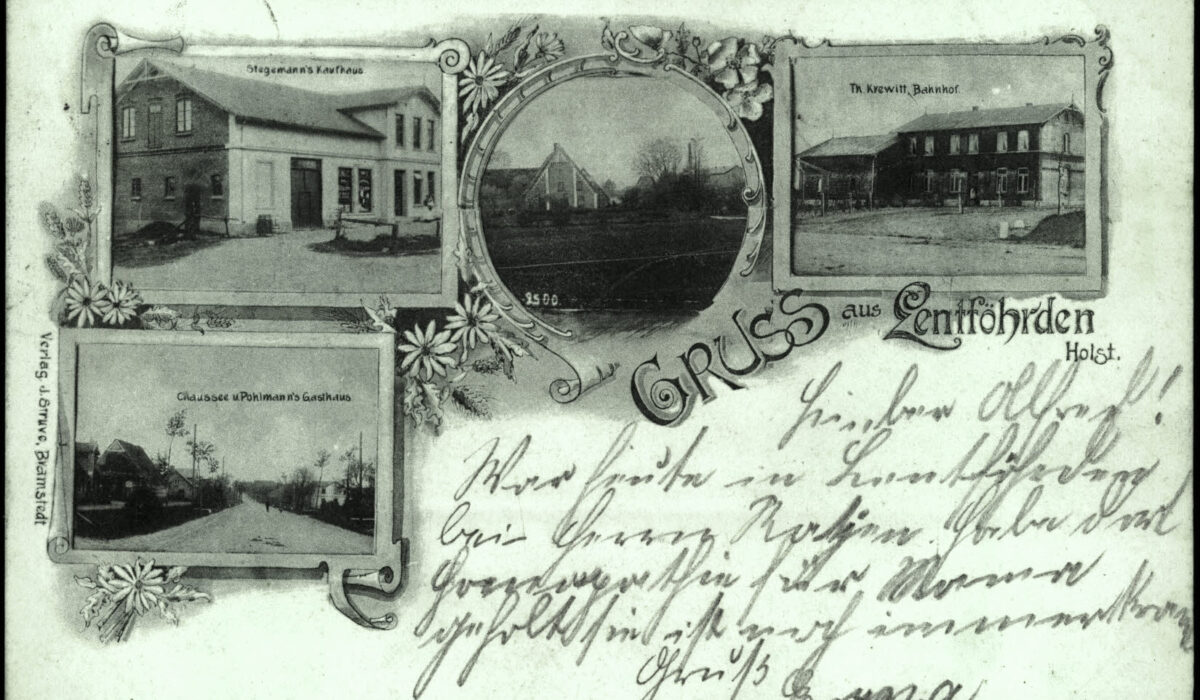 Stegemann's Kaufhaus
Th. Krewitt, Bahnhof.
2500.
GRUSS aus Lentföhrden
Holst.
Chaussee u. Pohlmann's Gasthaus
Verlag J. Struve, Bramstedt
Lieber Alfred!
War heute in Lentföhrden
bei Herrn habe dort
für Mama
geholt sie ist noch immer krank
Gruß